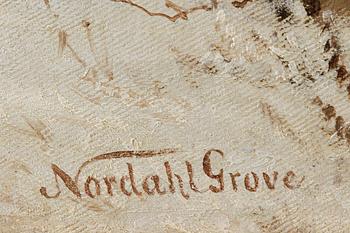 Nordahl Grove